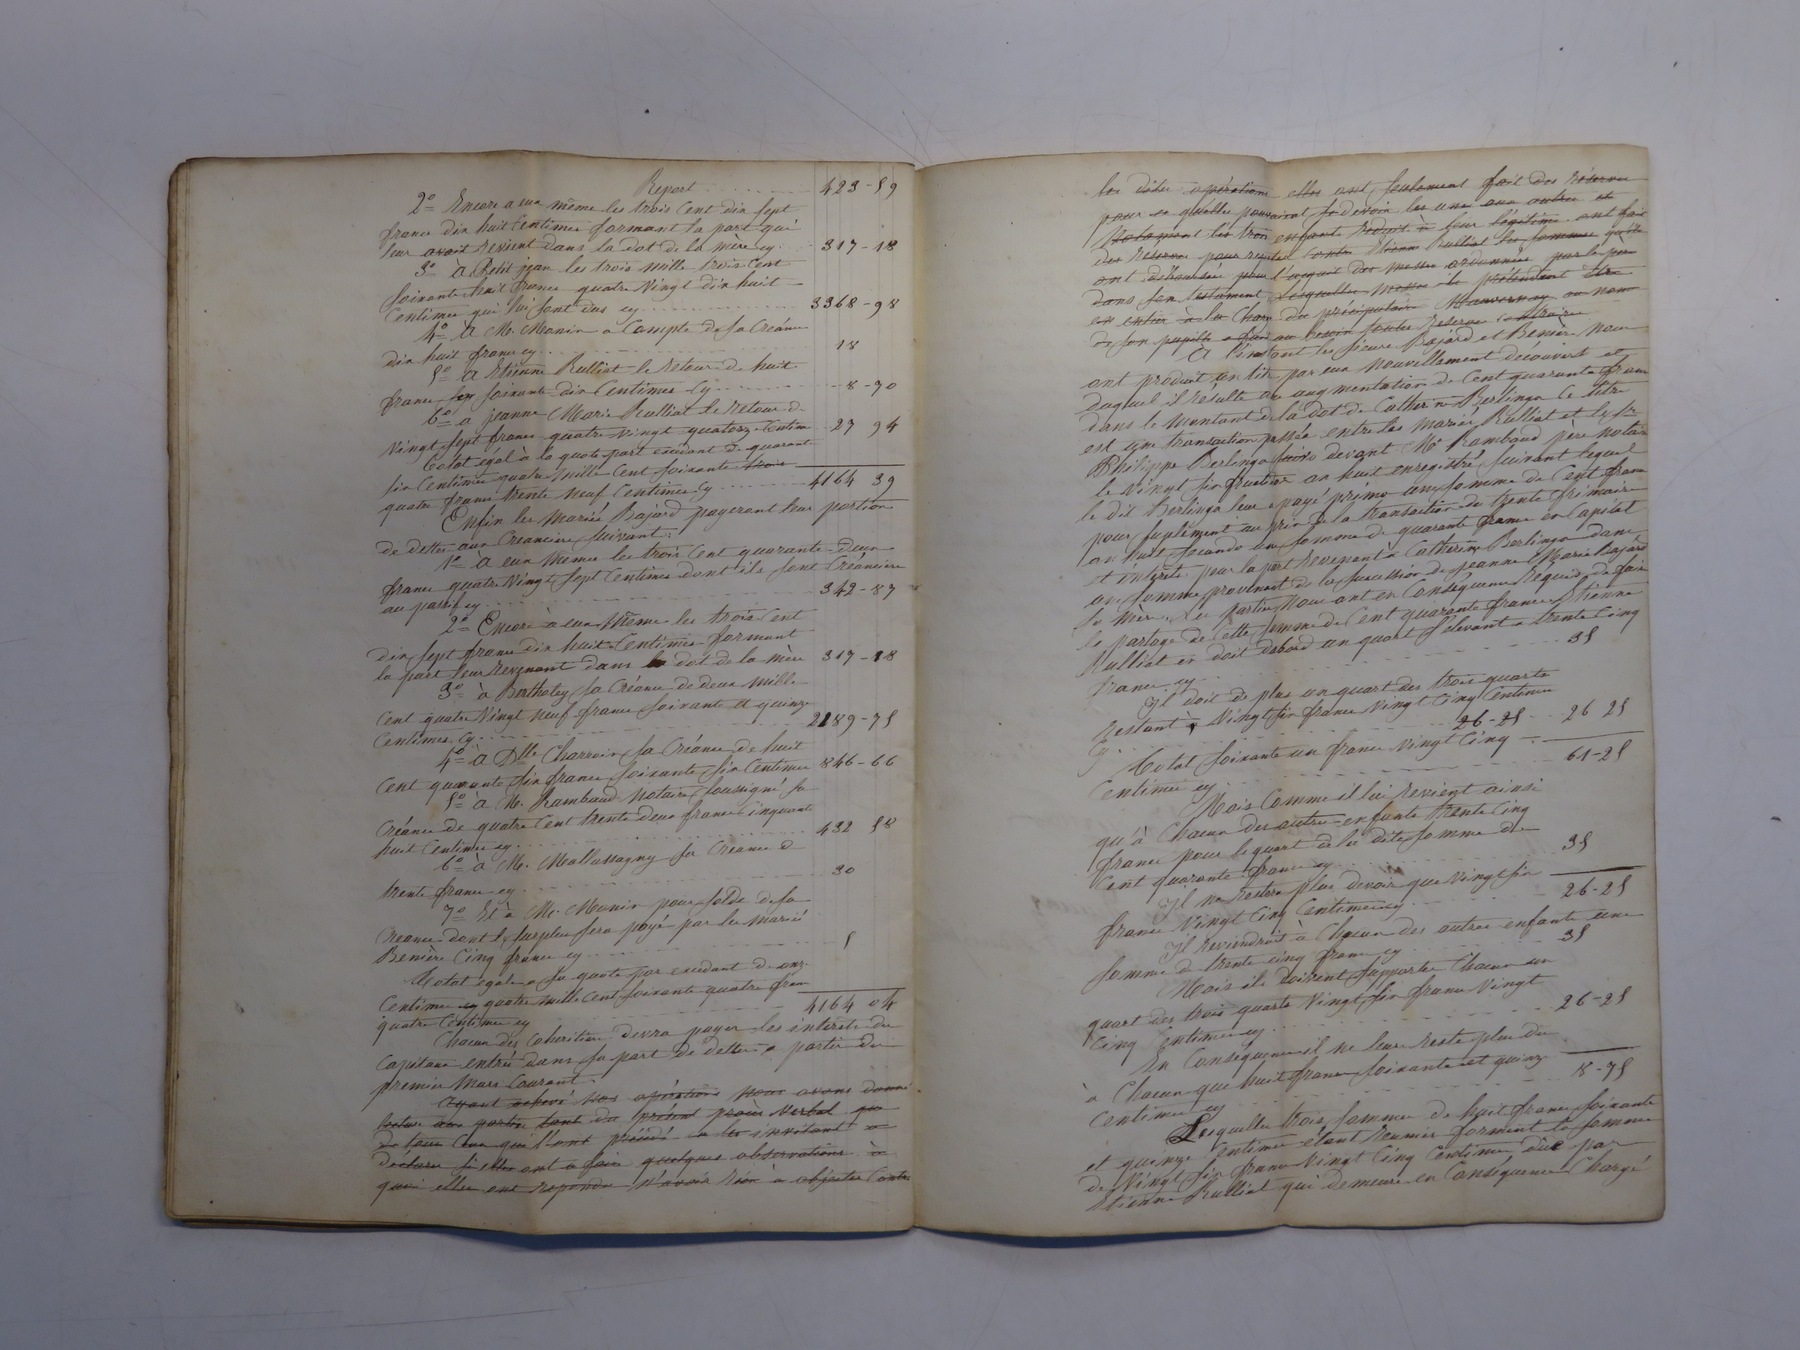 Report . . . . . . . . 423-59
2° Encore a eux même les trois cent dix sept
francs dix huit Centimes formant la part qui
leur avait Revient dans la dot de la mère cy . . 317-18
3° à Petit jean les trois mille trois cent
soixante huit francs quatre Vingt dix huit
Centimes qui lui sont dus cy . . . . . 3368-98
4° à M. Monin a Compte de sa Créance
dix huit francs cy . . . . . 18
5° à Etienne Rulliat le retour de huit
francs soixante dix Centimes Cy . . . . 8-70
6° a jeanne Marie Rulliat le retour de
Vingt sept francs quatre Vingt quatorze Centimes 27 94
Total égal à la quote part excédant de quarante
six Centimes quatre mille Cent soixante trois
quatre francs trente neuf Centimes Cy . . . . 4164 39
Enfin les Mariés Bajard payeront leur portion
de dettes aux Creanciers suivant :
1° à eux mêmes les trois Cent quarante-deux
francs quatre Vingt sept Centimes dont ils sont Créanciers
au passif cy . . . . . 342-87
2° Encore à eux Même les trois Cent
dix sept francs dix huit Centimes formant
la part leur Revenant dans la dot de la mère 317-18
3° à Bertholey sa Créance de deux mille
Cent quatre Vingt neuf francs soixante et quinze
Centimes Cy . . . . . 2189-75
4° à Dlle Charroin sa Créance de huit
Cent quarante six francs soixante six Centimes 846-66
5° à M. Rambaud Notaire soussigné sa
Créance de quatre Cent trente deux francs Cinquante
huit Centimes cy . . . . . 432 58
6° à M. Mallassagny sa Creance de
trente francs cy . . . . . 30
7° Et à M. Monin pour solde de sa
Creance dont le surplus sera payé par les Mariés
Benière Cinq francs cy . . . . 5
Total égale a sa quote par excedant de onze
Centimes cy quatre mille Cent soixante quatre francs
quatre Centimes cy . . . . 4164 04
Chacun des Coheritiers devra payer les interets des
Capitaux entrés dans sa part de dettes a partir du
premier Mars Courant.
Ayant achevé nos opérations Nous avons donné
lecture aux parties tant du présent procès Verbal que
de tous Ceux qui l'ont précédé en les invitant à
declarer si elles ont a faire quelques observations à
quoi elles ont répondu n'avoir Rien à objecter Contre
les dites opérations elles ont seulement fait des Réserves
pour ce qu'elles pouvaient se devoir les uns aux autres et
Notamment les trois enfants Réduit à leur légitime ont fait
des Réserves pour repeter contre Etienne Rulliat les sommes qu'ils
ont déboursées pour l'acquit des messes ordonnées par le père
dans son testament lesquelles messes ils prétendent être
en entier à la Charge du précipulaire Mauvernay au nom
de son pupille a fait au besoin toutes Reserves Contraires
A l'instant les sieurs Bajard et Benière Nous
ont produit un titre par eux Nouvellement decouvert et
duquel il résulte une augmentation de Cent quarante francs
dans le Montant de la dot de Catherine Berlinga Ce titre
est une transaction passée entre les Mariés Rulliat et le Sr
Philippe Berlinga devant Me Rambaud père Notaire
le Vingt six fructidor an huit enregistré suivant lequel
le dit Berlinga leur a payé primo une somme de Cent francs
pour suplément au prix de la transaction du trente frimaire
an huit secundo une somme de quarante francs en Capital
et interets pour la part Revenant à Catherine Berlinga dans
une somme provenant de la succession de jeanne Marie Bajard
sa mère. Les parties Nous ont en Conséquence Requis de faire
le partage de Cette somme de Cent quarante francs Etienne
Rulliat en doit dabord un quart s'elevant a trente Cinq
francs cy . . . . . 35
Il doit de plus un quart des trois quarts
Restant à Vingt six francs Vingt Cinq Centimes
Cy . . . . . 26-25 . . 26 25
Total soixante un francs Vingt Cinq
Centimes cy . . . . . 61-25
Mais Comme il lui revient ainsi
qu'à Chacun des autres enfants trente Cinq
francs pour le quart de la dite somme de
Cent quarante francs cy . . . . . 35
Il ne restera plus devoir que Vingt six
francs Vingt Cinq Centimes cy . . . . . 26-25
Il Reviendroit à Chacun des autres enfants une
somme de trente cinq francs cy . . . . 35
Mais ils doivent supporter Chacun un
quart des trois quarts Vingt six francs Vingt
Cinq Centimes cy . . . . . 26-25
En Conséquence il ne leur reste plus du
à Chacun que huit francs soixante et quinze
Centimes cy . . . . . 8-75
Lesquelles trois sommes de huit francs soixante
et quinze Centimes étant Reunies forment la somme
de Vingt six francs Vingt Cinq Centimes due par
Etienne Rulliat qui demeure en Consequence Chargé